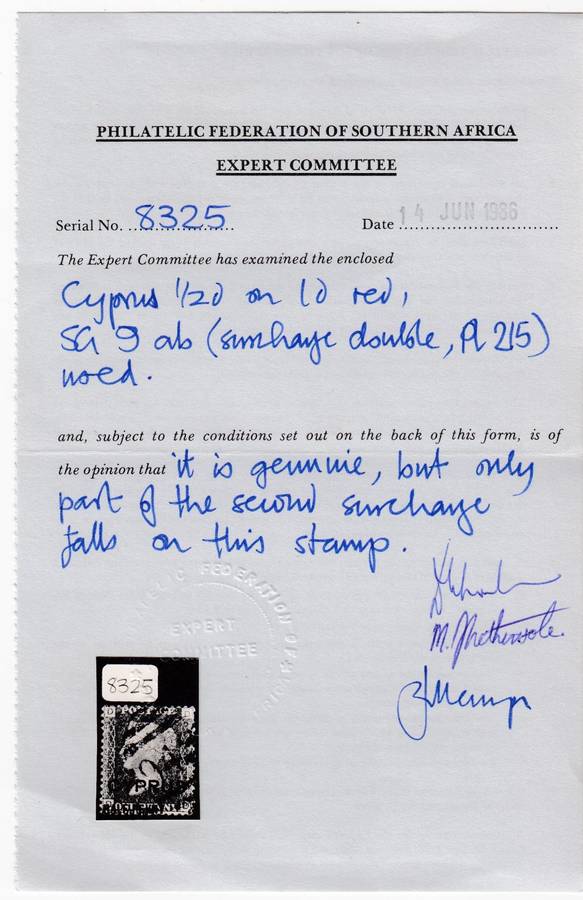 PHILATELIC FEDERATION OF SOUTHERN AFRICA
EXPERT COMMITTEE
Serial No. 8325 Date 14 JUN 1986
The Expert Committee has examined the enclosed
Cyprus 1/2d on 1d red,
SG 9 ab (surcharge double, Pl 215)
used.
and, subject to the conditions set out on the back of this form, is of
the opinion that it is genuine, but only
part of the second surcharge
falls on this stamp.
PHILATELIC FEDERATION OF
EXPERT
COMMITTEE
8325
POSTAGE